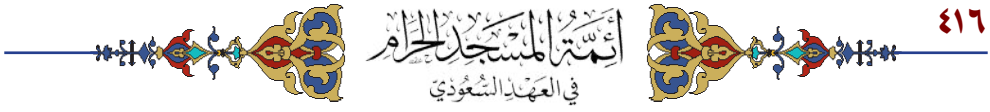 ٤١٦
أَئِمَّةُ المَسْجِدِ الحَرَامِ
في العَهْدِ السُّعُودِيّ